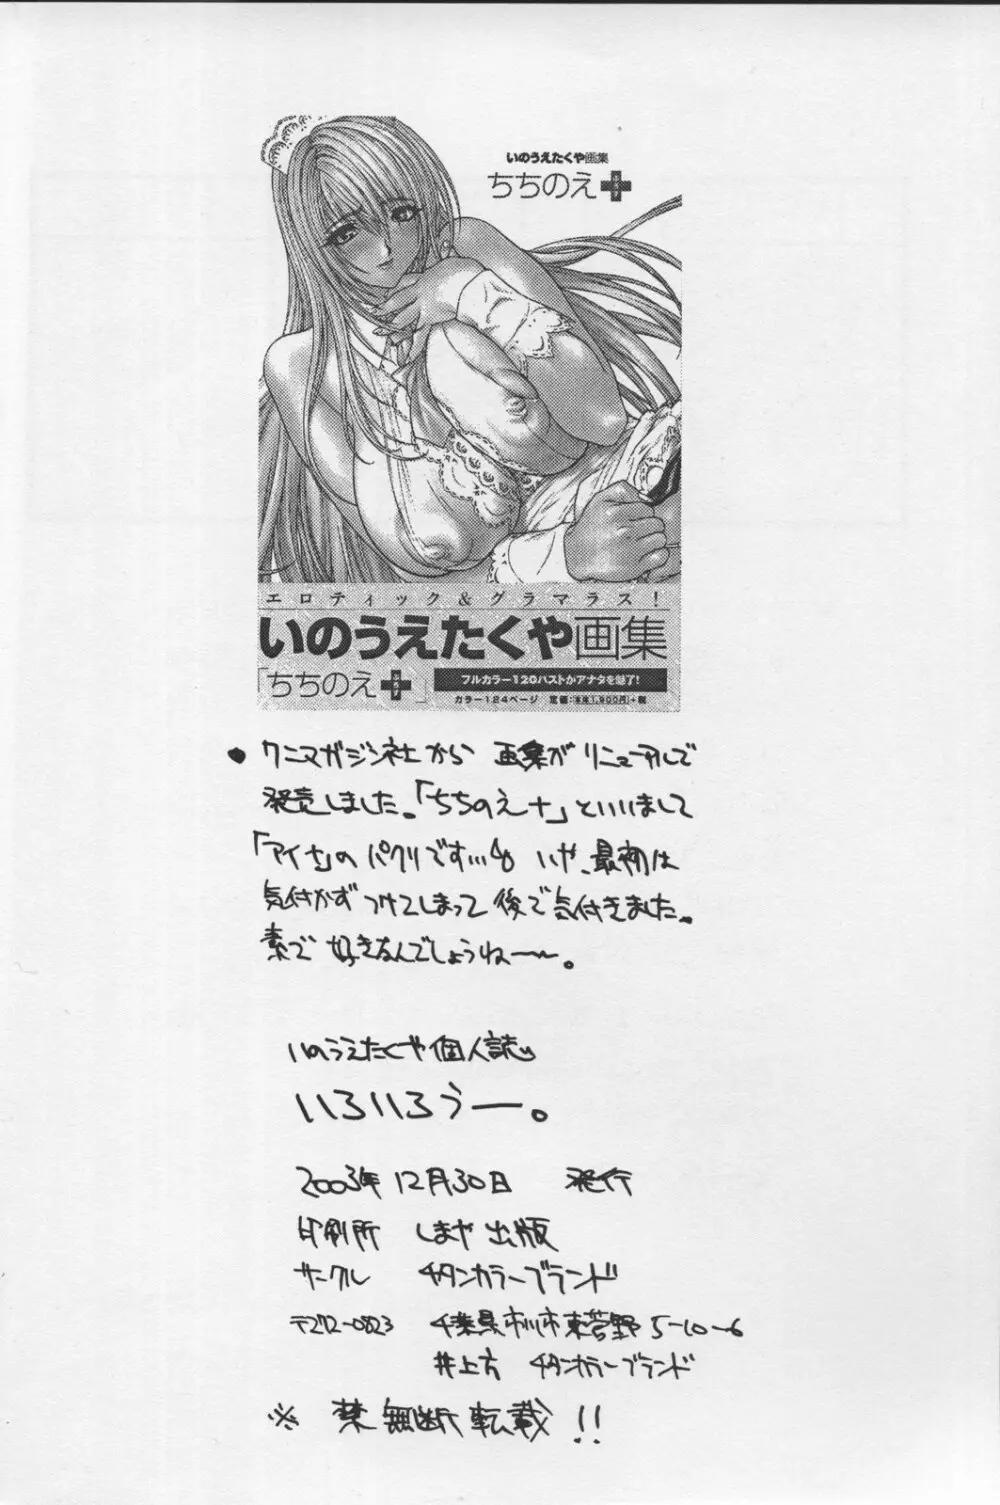 いのうえたくや画集
ちちのえ
エロティック&グラマラス!
いのうえたくや画集
「ちちのえ 」
フルカラー120バストがアナタを魅了!
カラー124ページ 定価:本体1,900円+税
● ワニマガジン社から 画集がリニューアルして
発売しました。「ちちのえ+」といいまして
「アイナ」の パクリです… いや、最初は
気付かず つけてしまって 後で気付きました。
素で 好きなんでしょうね〜〜。
いのうえたくや個人誌
いろいろうー。
2003年 12月30日 発行
印刷所 しまや出版
サークル チタンカラーブランド
〒272-0823 千葉県市川市東菅野 5-10-6
井上方 チタンカラーブランド
※ 禁無断転載!!